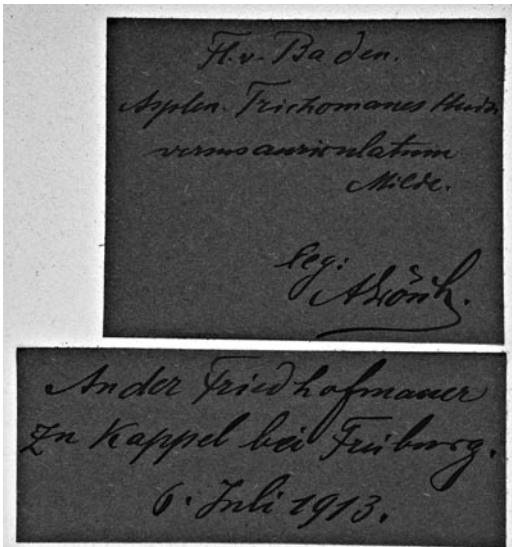 Fl. v. Baden.
Asplen. Trichomanes Huds.
versus auriculatum
Milde.
leg:
An der Friedhofmauer
zu Kappel bei Freiburg.
6. Juli 1913.